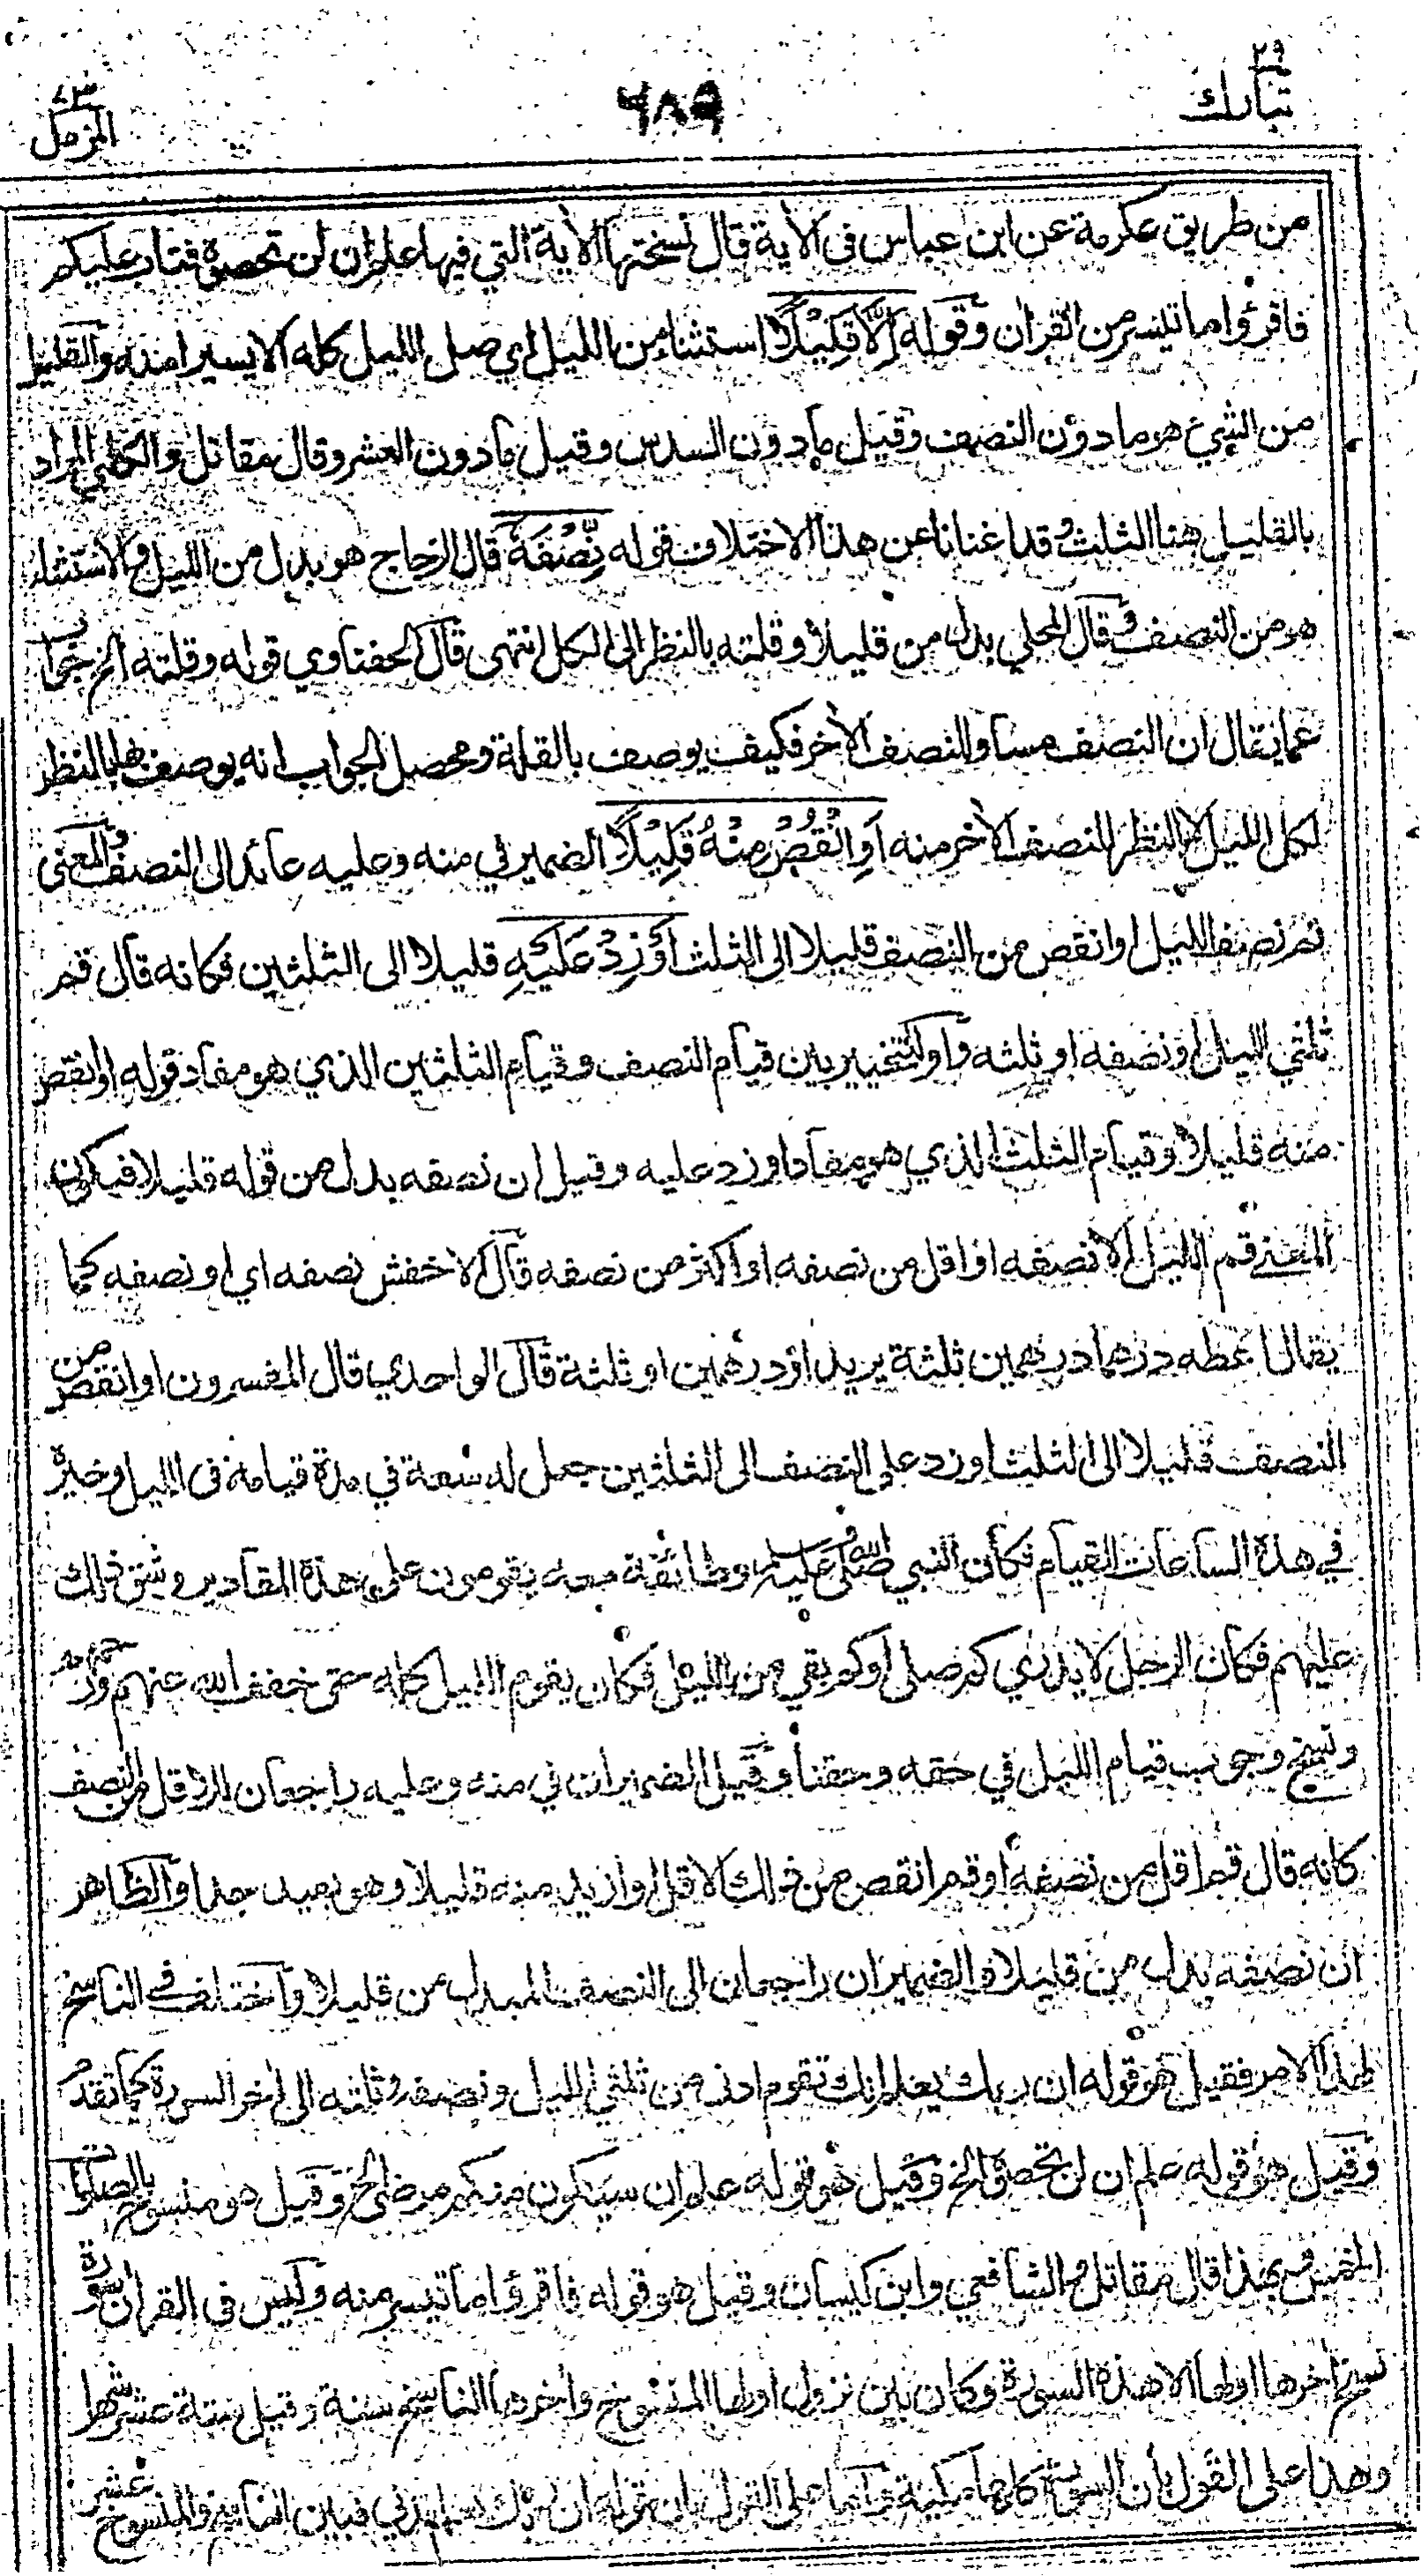 ٢٩
تبارك
٦٨٩
٧٣
المزمل
من طريق عكرمة عن ابن عباس فى الأية قال نسختها الأية التي فيها علم ان لن تحصوه فتاب عليكم
فاقرؤا ما تيسر من القران وقوله اِلَّا قَلِيْلًا استثناء من الليل اي صل الليل كله الا يسيرا منه والقليل
من الشيء هو ما دون النصف وقيل ما دون السدس وقيل ما دون العشر وقال مقاتل والكلبي المراد
بالقليل هنا الثلث وقد اغنانا عن هذا الاختلاف قوله نِّصْفَهٗ قال الزجاج هو بدل من الليل والاستثناء
هو من النصف وقال المحلي بدل من قليلا وقلته بالنظر الى الكل انتهى قال الحفناوي قوله وقلته الخ جواب
عما يقال ان النصف مساو للنصف الأخر فكيف يوصف بالقلة ومحصل الجواب انه يوصف بها بالنظر
لكل الليل لا بالنظر للنصف الأخر منه اَوِ انْقُصْ مِنْهُ قَلِيْلًا الضمير في منه وعليه عائد الى النصف والمعنى
قم نصف الليل او انقص من النصف قليلا الى الثلث اَوْ زِدْ عَلَيْهِ قليلا الى الثلثين فكانه قال قم
ثلثي الليل او نصفه او ثلثه واو للتخيير بين قيام النصف وقيام الثلثين الذي هو مفاد قوله او انقص
منه قليلا وقيام الثلث الذي هو مفاد او زد عليه وقيل ان نصفه بدل من قوله قليلا فيكون
المعنى قم الليل الا نصفه او اقل من نصفه او اكثر من نصفه قال الاخفش نصفه اي او نصفه كما
يقال اعطه درهما درهمين ثلثة يريد او درهمين او ثلثة قال الواحدي قال المفسرون او انقص من
النصف قليلا الى الثلث او زد على النصف الى الثلثين جعل له سعة في مدة قيامه فى الليل وخيره
في هذه الساعات للقيام فكان النبي صلى الله عليه وسلم وطائفة معه يقومون على هذه المقادير وشق ذلك
عليهم فكان الرجل لا يدري كم صلى او كم بقي من الليل فكان يقوم الليل كله حتى خفف الله عنهم
ونسخ وجوب قيام الليل في حقه وحقنا وقيل الضميران في منه وعليه راجعان للاقل من النصف
كانه قال قم اقل من نصفه او قم انقص من ذلك الاقل او ازيد منه قليلا وهو بعيد جدا والظاهر
ان نصفه بدل من قليلا والضميران راجعان الى النصف المبدل من قليلا واختلف في الناسخ
لهذا الامر فقيل هو قوله ان ربك يعلم انك تقوم ادنى من ثلثي الليل ونصفه وثلثه الى اخر السورة كما تقدم
وقيل هو قوله علم ان لن تحصوه الخ وقيل هو قوله علم ان سيكون منكم مرضى الخ وقيل هو منسوخ بالصلوات
الخمس وبهذا قال مقاتل والشافعي وابن كيسان وقيل هو قوله فاقرؤا ما تيسر منه وليس فى القران سورة
نسخ اخرها اولها الا هذه السورة وكان بين نزول اولها المنسوخ واخرها الناسخ سنة وقيل ستة عشر شهرا
وهذا على القول بأن السورة كلها مكية واما على القول بان قوله ان ربك يعلم مدني فبين الناسخ والمنسوخ عشر